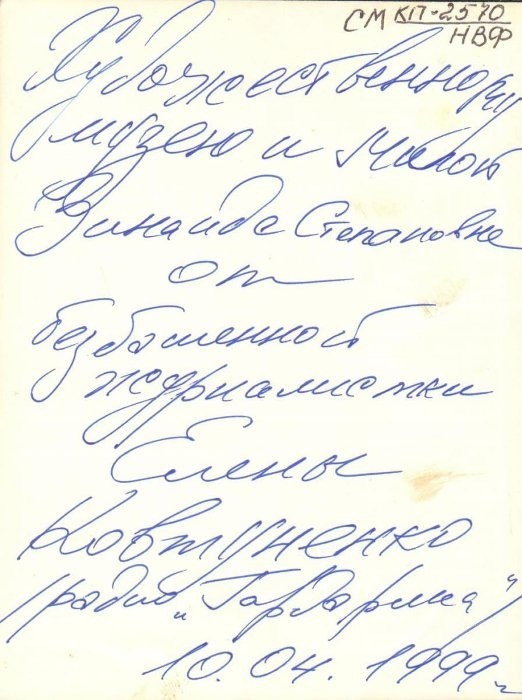 СМ КП-2570
НВФ
Художественному
музею и милой
Зинаиде Степановне
от
безбашенной
журналистки
Елены
Ковтуненко
/радио „Гардарика"/
10.04.1999 г.